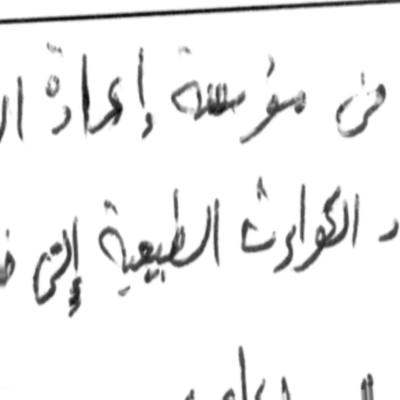 من مؤسسة إعادة ال
د الكوارث الطبيعية إلتى